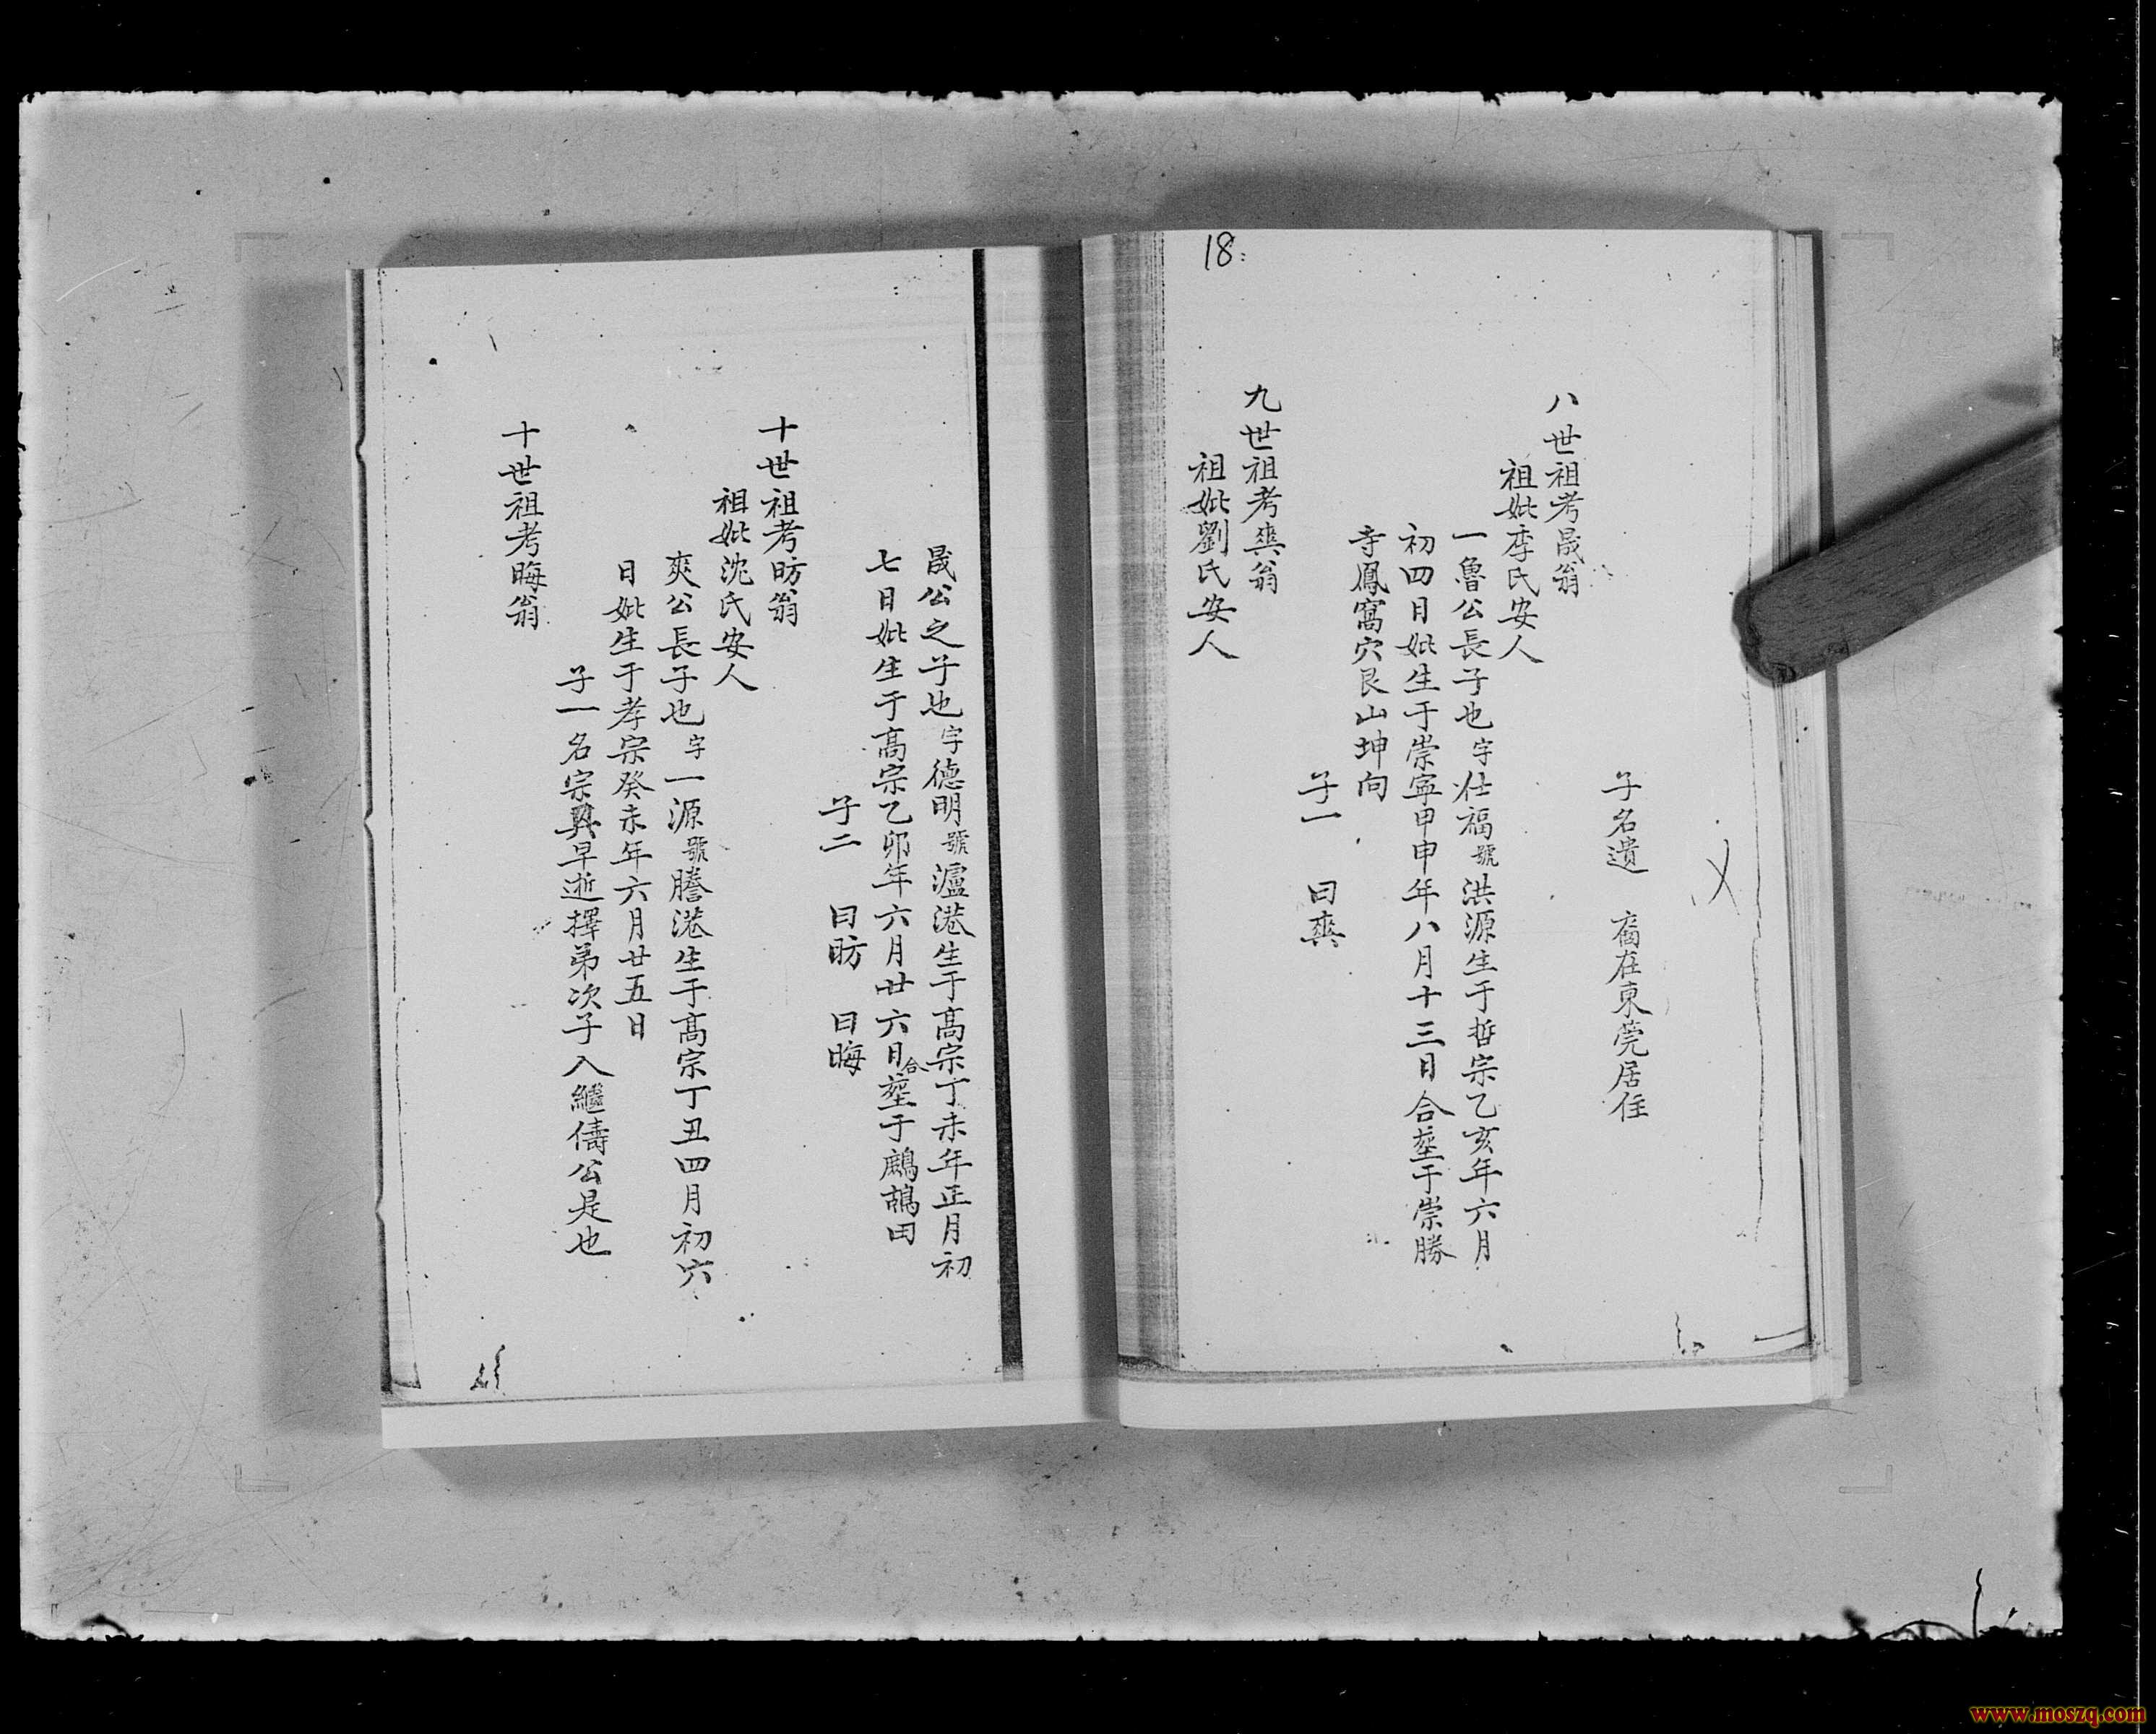 18.
子名遺　裔在東莞居住
八世祖考晟翁
祖妣李氏安人
一魯公長子也字仕福號洪源生于哲宗乙亥年六月
初四日妣生于崇寧甲申年八月十三日合塟于崇勝
寺鳳窩穴艮山坤向
子一　曰爽
九世祖考爽翁
祖妣劉氏安人
晟公之子也字德明號瀘港生于高宗丁未年正月初
七日妣生于高宗乙卯年六月廿六日合塟于鷓鴣田
子二　曰昉　曰晦
十世祖考昉翁
祖妣沈氏安人
爽公長子也字一源號謄港生于高宗丁丑四月初六
日妣生于孝宗癸未年六月廿五日
子一名宗早逝擇弟次子入繼儔公是也
十世祖考晦翁
www.moszq.com